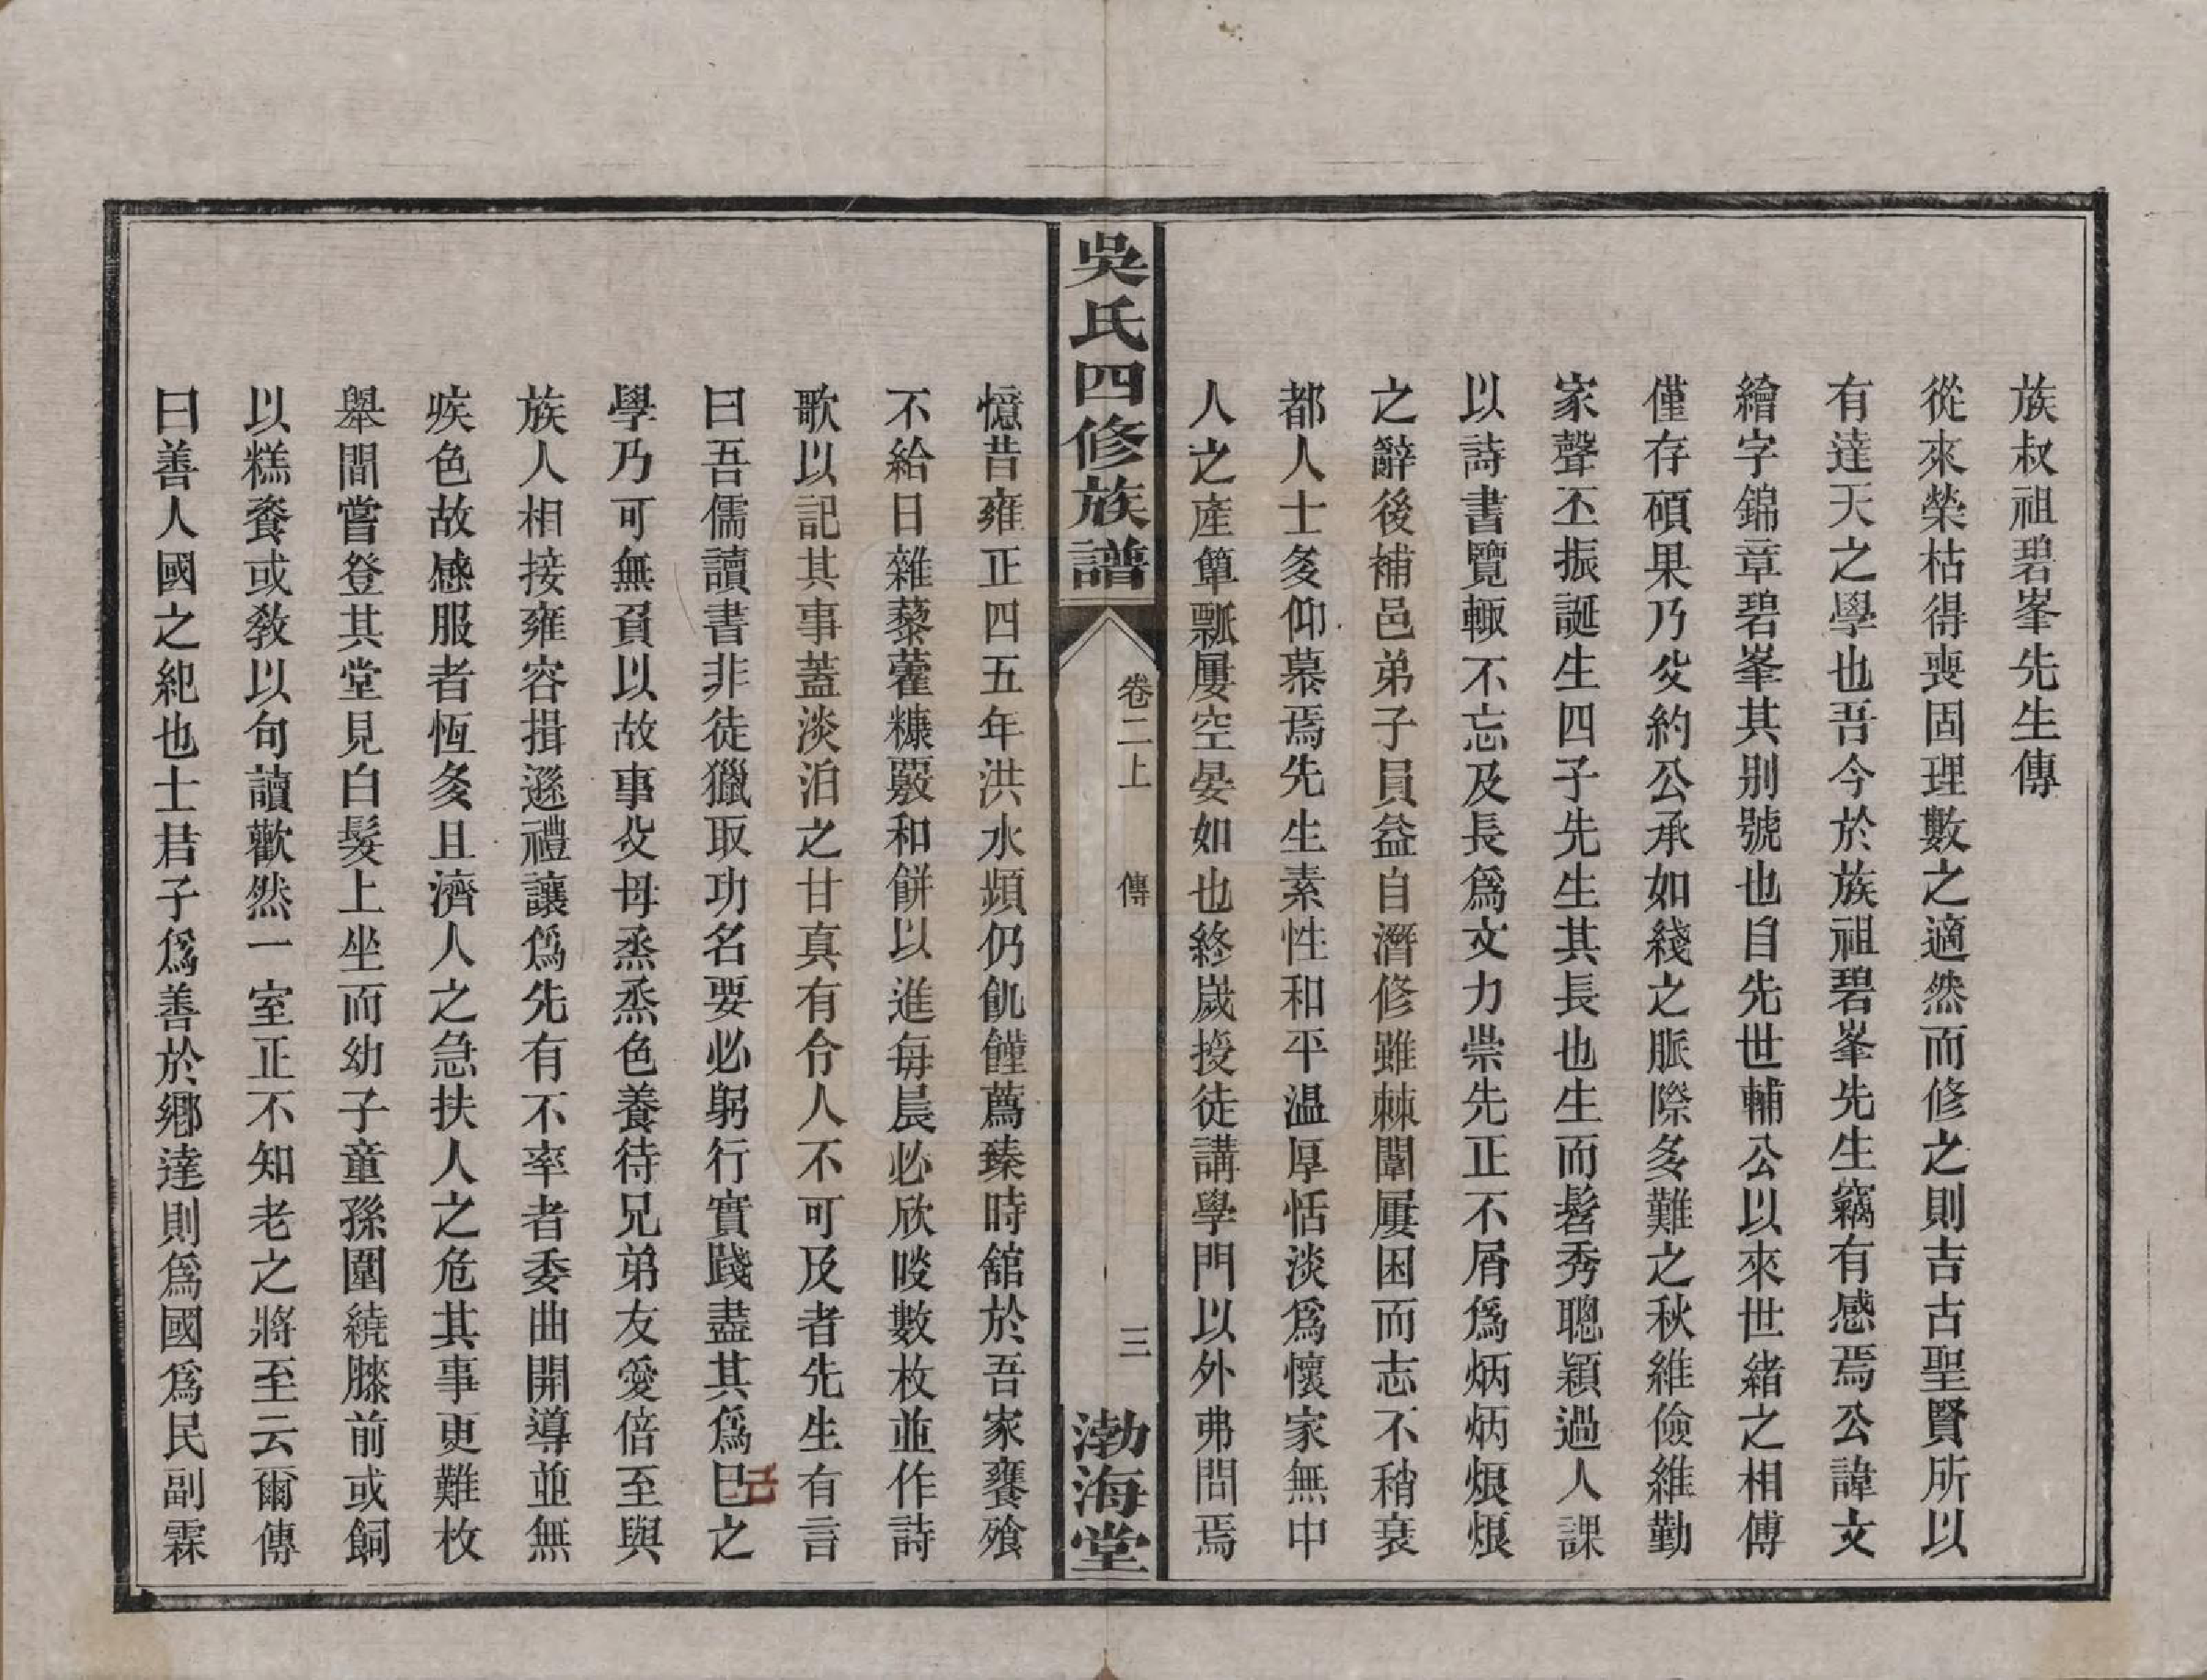 族叔祖碧峯先生傳
從來榮枯得喪固理數之適然而修之則吉古聖賢所以
有達天之學也吾今於族祖碧峯先生竊有感焉公諱文
繪字錦章碧峯其別號也自先世輔公以來世緒之相傳
僅存碩果乃父約公承如綫之脈際多難之秋維儉維勤
家聲丕振誕生四子先生其長也生而髫秀聰穎過人課
以詩書覽輒不忘及長爲文力崇先正不屑爲炳炳烺烺
之辭後補邑弟子員益自潛修雖棘闈屢困而志不稍衰
都人士多仰慕焉先生素性和平温厚恬淡爲懷家無中
人之產簞瓢屢空晏如也終歲授徒講學門以外弗問焉
吳氏四修族譜
卷二上
傳
三
渤海堂
憶昔雍正四五年洪水頻仍飢饉薦臻時舘於吾家饔飱
不給日雜藜藿糠覈和餅以進每晨必欣啖數枚並作詩
歌以記其事蓋淡泊之甘真有令人不可及者先生有言
曰吾儒讀書非徒獵取功名要必躬行實踐盡其爲巳之
己
學乃可無負以故事父母烝烝色養待兄弟友愛倍至與
族人相接雍容揖遜禮讓爲先有不率者委曲開導並無
疾色故感服者恆多且濟人之急扶人之危其事更難枚
舉間嘗登其堂見白髮上坐而幼子童孫圍繞膝前或飼
以糕餈或教以句讀歡然一室正不知老之將至云爾傳
曰善人國之紀也士君子爲善於鄉達則爲國爲民副霖